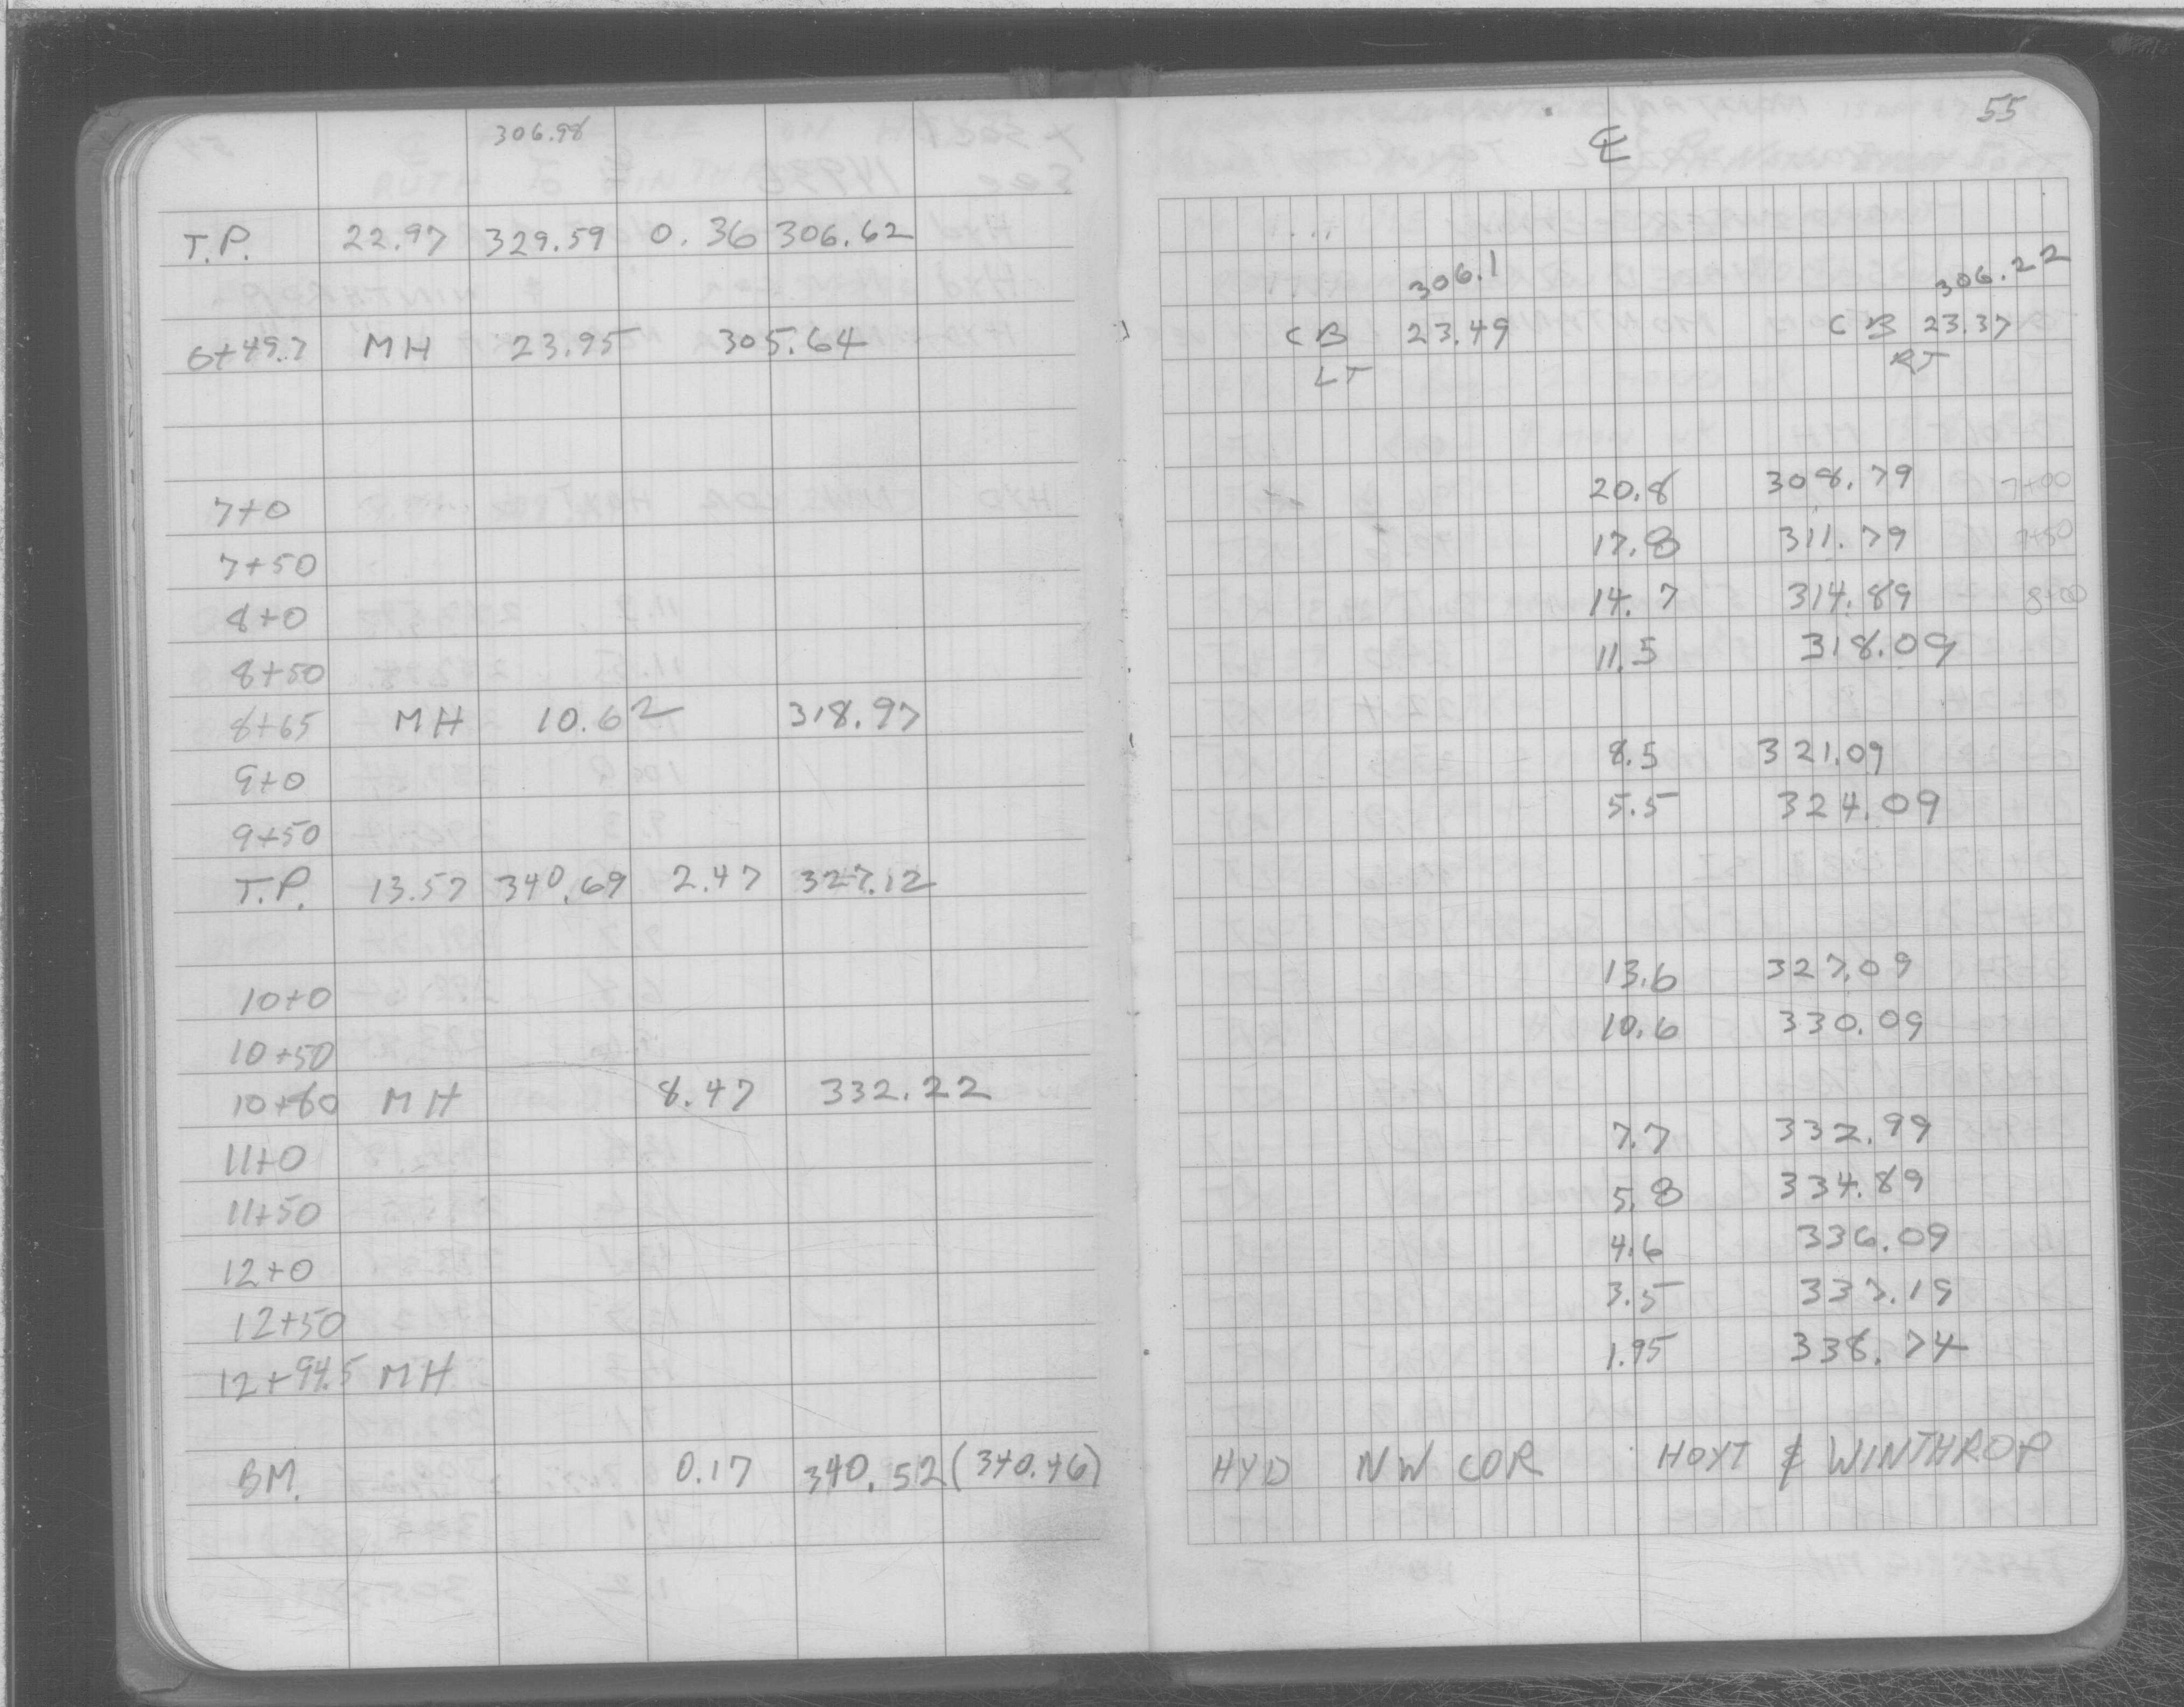 306.98
T.P. 22.97 329.59 0.36 306.62
6+49.7 MH 23.95 305.64
7+0
7+50
8+0
8+50
8+65 MH 10.62 318.97
9+0
9+50
T.P. 13.57 340.69 2.47 327.12
10+0
10+50
10+60 MH 8.47 332.22
11+0
11+50
12+0
12+50
12+94.5 MH
BM. 0.17 340.52 (340.46)
55
℄
306.1 306.22
CB 23.49 CB 23.37
LT RT
20.8 308.79 7+00
17.8 311.79 7+50
14.7 314.89 8+00
11.5 318.09
8.5 321.09
5.5 324.09
13.6 327.09
10.6 330.09
7.7 332.99
5.8 334.89
4.6 336.09
3.5 337.19
1.95 338.74
HYD NW COR HOYT & WINTHROP